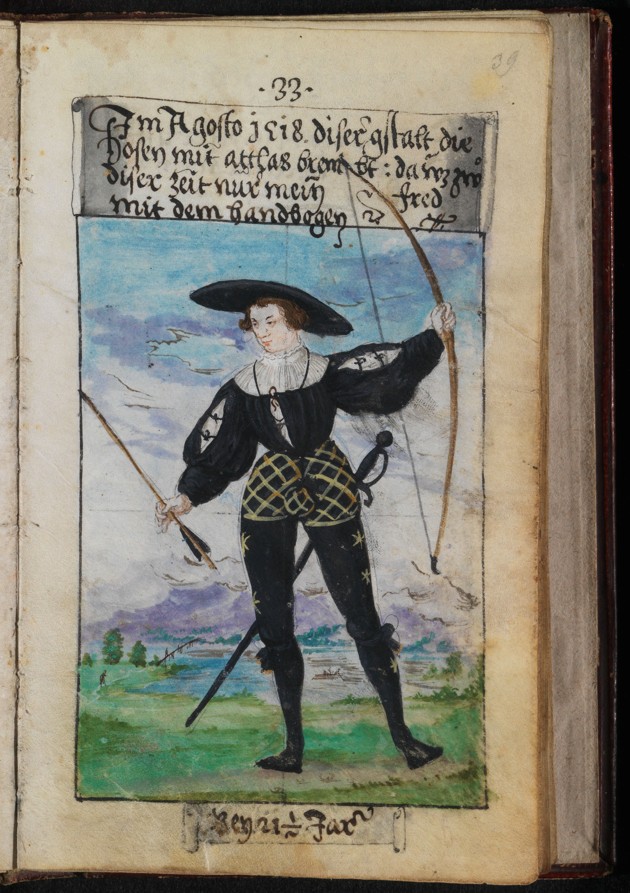 39
·33·
Im Agosto 1518. diser gstalt die
Hosen mit atthas brem bt: da wz zuͦ
diser zeit nur mein fred
mit dem handbogen
Bey 21½ Jar